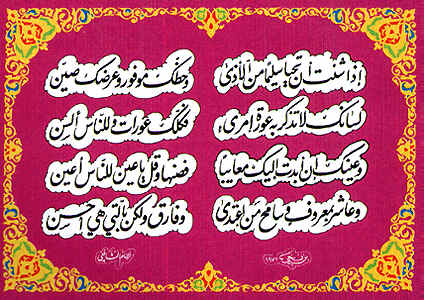 اذا شئت ان تحيا سليما من الأذى وحظك موفور وعرضك صين
لسانك لا تذكر به عورة امرئ فكلك عورات وللناس ألسن
وعينك ان أبدت إليك معايبا فصنها وقل يا عين للناس أعين
وعاشر بمعروف وسامح من اعتدى وفارق ولكن بالتي هي أحسن
الامام الشافعي